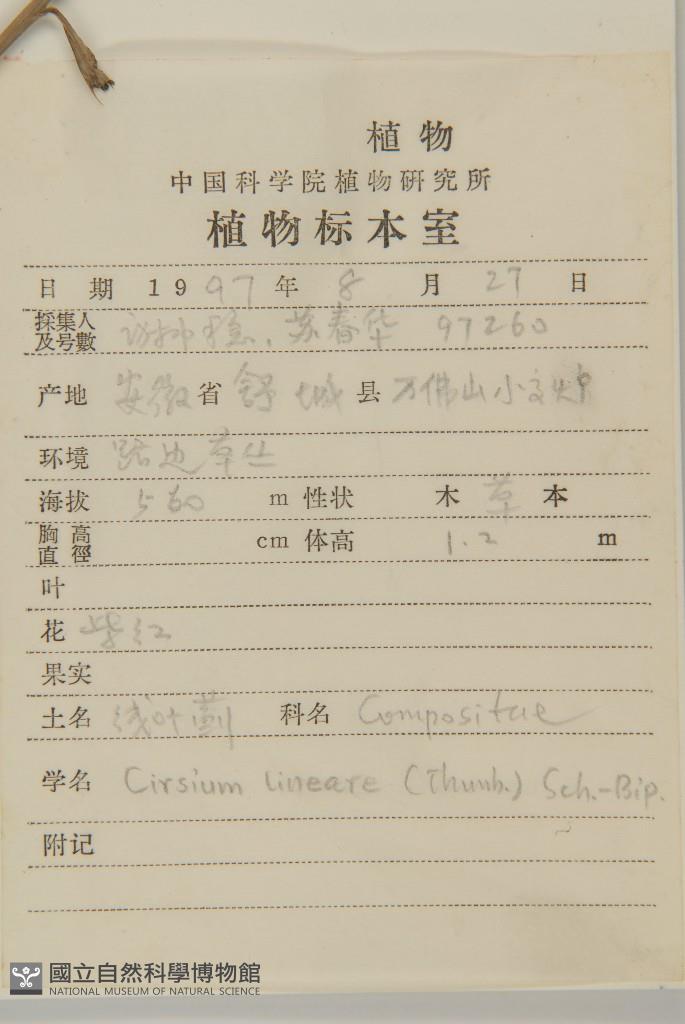 植物
中国科学院植物研究所
植物标本室
日期 1997年 8月 27日
採集人及号數 苏春华 97260
产地 安徽省 舒城县 万佛山小
环境 路边草丛
海拔 560 m 性状 木 草 本
胸高直徑 cm 体高 1.2 m
叶
花 紫红
果实
土名 线叶蓟 科名 Compositae
学名 Cirsium lineare (Thunb.) Sch.-Bip.
附记
國立自然科學博物館
NATIONAL MUSEUM OF NATURAL SCIENCE